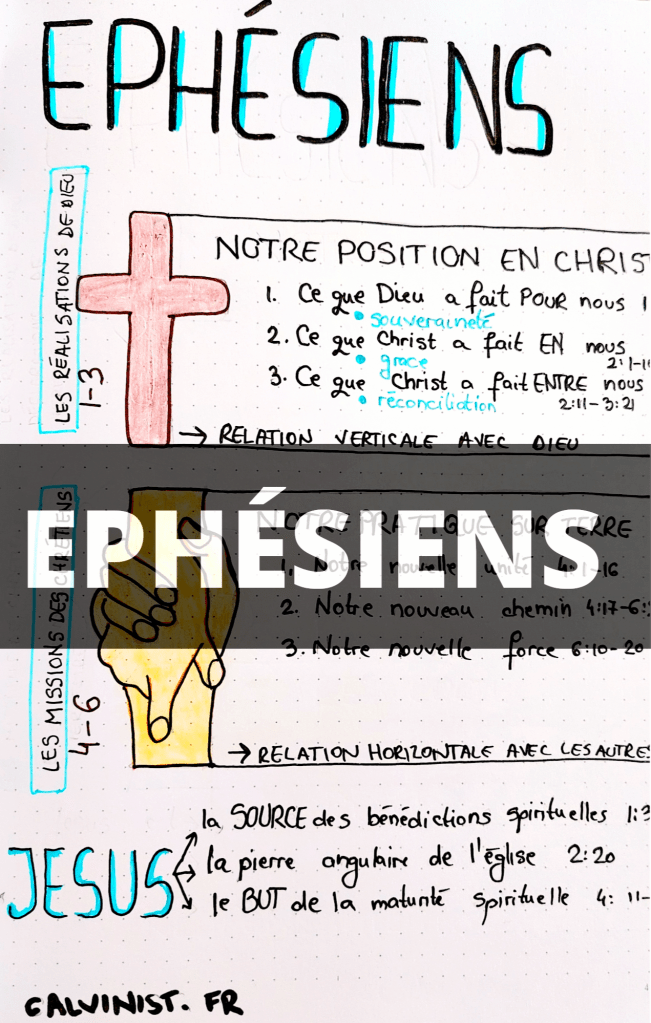 EPHÉSIENS
LES RÉALISATIONS DE DIEU
1-3
NOTRE POSITION EN CHRIS
1. Ce que Dieu a fait POUR nous 1
• souveraineté
2. Ce que Christ a fait EN nous
• grace 2:1-1
3. Ce que Christ a fait ENTRE nous
• réconciliation 2:11-3:21
→ RELATION VERTICALE AVEC DIEU
EPHÉSIENS
LES MISSIONS DES CHRÉTIENS
4-6
NOTRE PRATIQUE SUR TERRE
1. Notre nouvelle unité 4:1-16
2. Notre nouveau chemin 4:17-6:
3. Notre nouvelle force 6:10-20
→ RELATION HORIZONTALE AVEC LES AUTRES
JESUS
la SOURCE des bénédictions spirituelles 1:3
la pierre angulaire de l'église 2:20
le BUT de la maturité spirituelle 4: 11-
CALVINIST. FR